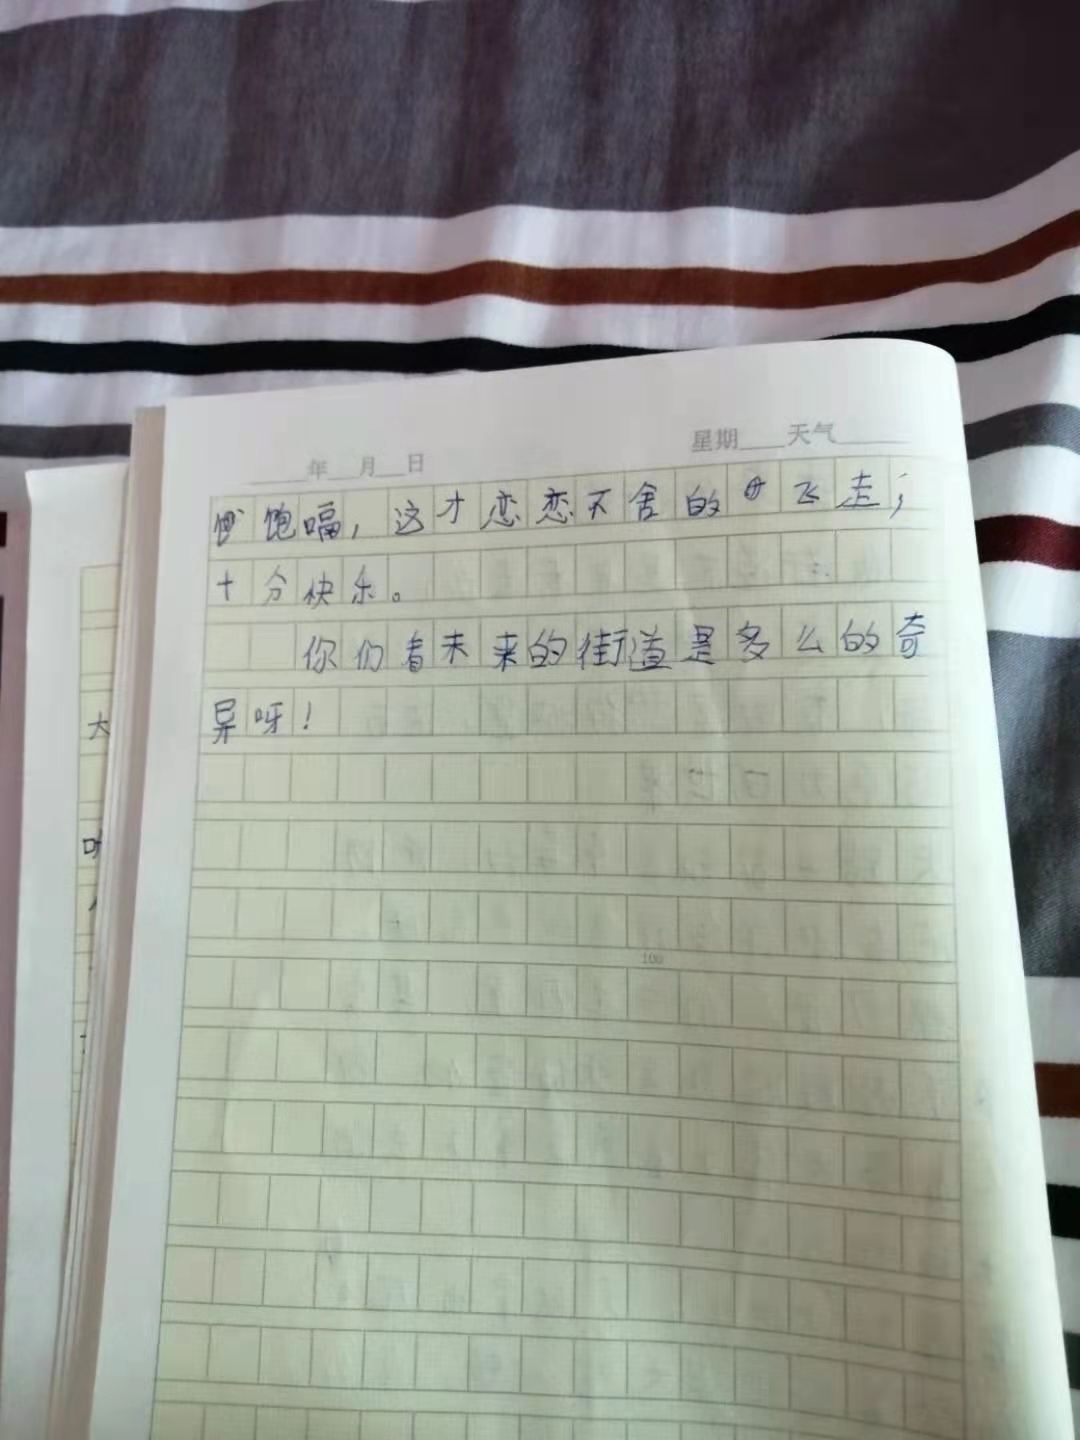 年 月 日 星期 天气
饱嗝，这才恋恋不舍的飞走，
十分快乐。
你们看未来的街道是多么的奇
异呀！
100
大